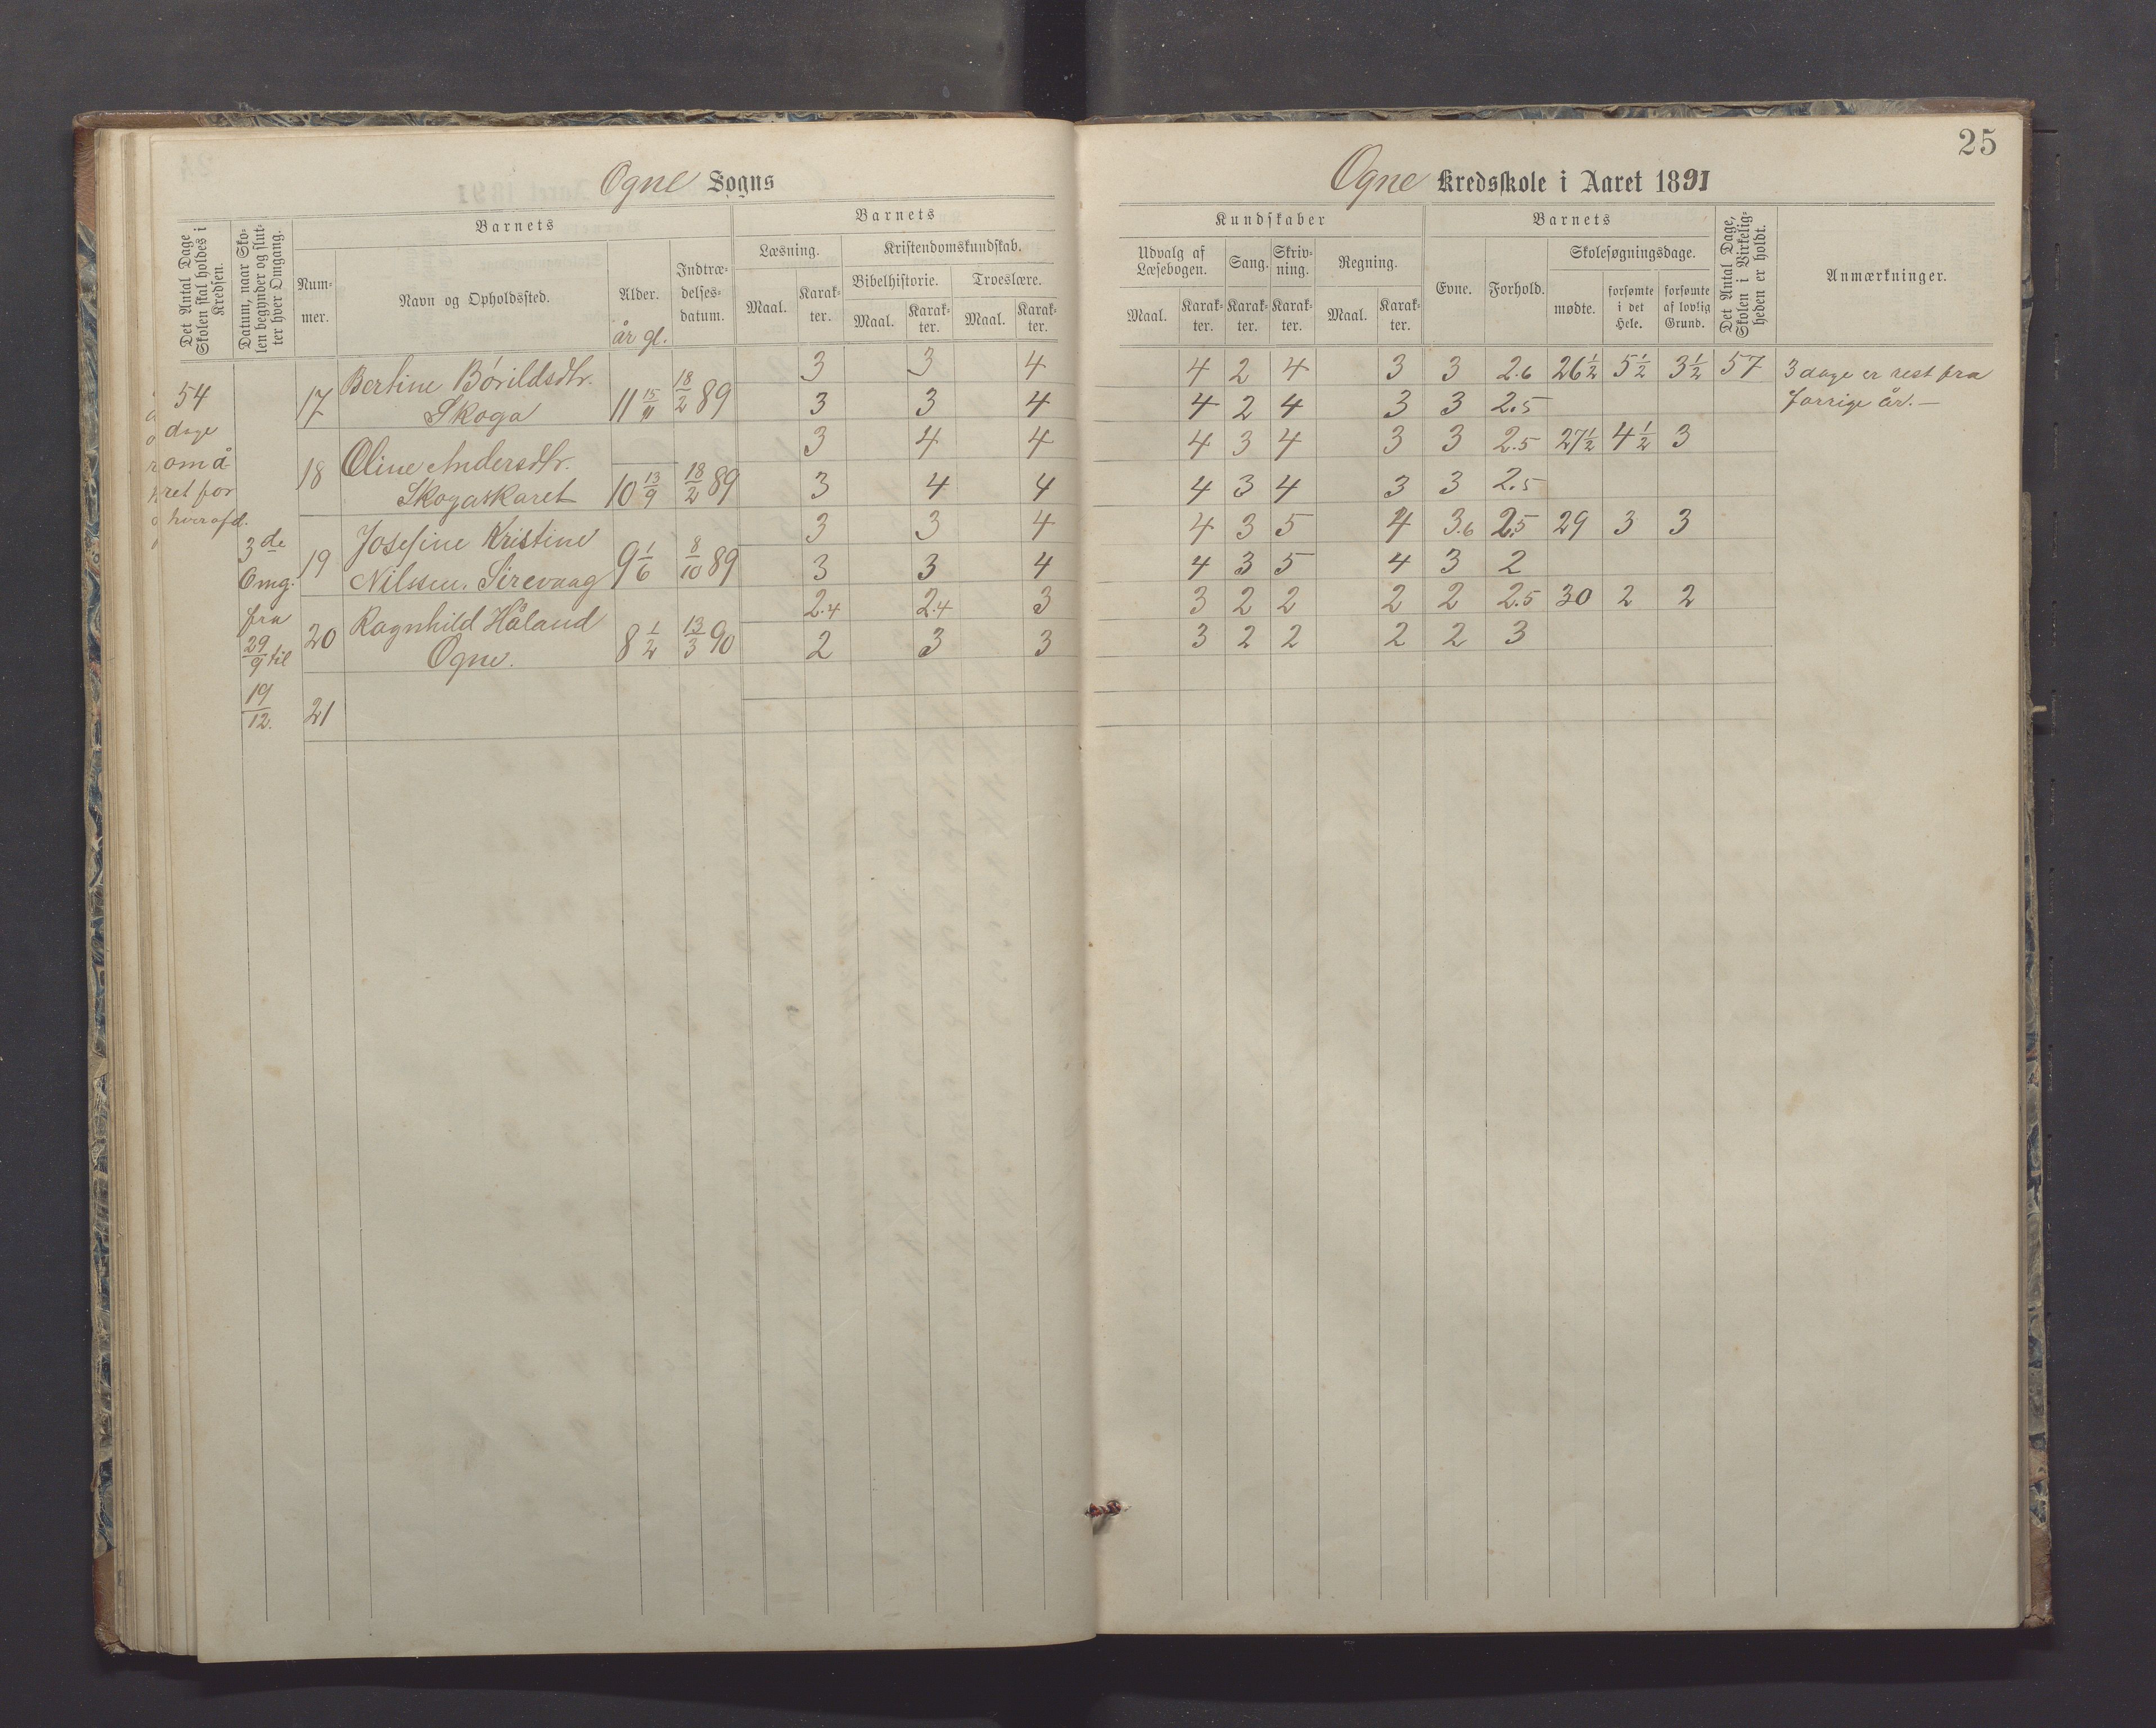 25
Ogne Sogns
Ogne Kredsskole i Aaret 1891
Det Antal Dage Skolen skal holdes i Kredsen.
Datum, naar Skolen begynder og slutter hver Omgang.
Barnets
Nummer.
Navn og Opholdssted.
Alder.
år gl.
Indtrædelsesdatum.
Barnets
Læsning.
Maal.
Karakter.
Kristendomskundskab.
Bibelhistorie.
Maal.
Karakter.
Troeslære.
Maal.
Karakter.
Kundskaber
Udvalg af Læsebogen.
Maal.
Karakter.
Sang.
Karakter.
Skrivning.
Karakter.
Regning.
Maal.
Karakter.
Barnets
Evne.
Forhold.
Skolesøgningsdage.
mødte.
forsømte i det Hele.
forsømte af lovlig Grund.
Det Antal Dage, Skolen i Virkeligheden er holdt.
Anmærkninger.
54
dage
om å-
ret for
hver afd.
3de
Omg.
fra
29/9 til
19/12.
17 Bertine Børildsdtr. 18/2 89 3 3 4 4 2 4 3 3 2.6 26½ 5½ 3½ 57 3 dage er rest fra
Skoga 11 15/11 3 3 4 4 2 4 3 3 2.5 forrige år.—
18 Oline Andersdtr. 3 4 4 4 3 4 3 3 2.5 27½ 4½ 3
Skogaskaret 10 13/9 18/2 89 3 4 4 4 3 4 3 3 2.5
19 Josefine Kristine 3 3 4 4 3 5 4 3.6 2.5 29 3 3
Nilssen. Sirevaag 9 1/6 8/10 89 3 3 4 4 3 5 4 3 2
20 Ragnhild Håland 2.4 2.4 3 3 2 2 2 2 2.5 30 2 2
Ogne. 8 1/2 13/3 90 2 3 3 3 2 2 2 2 3
21